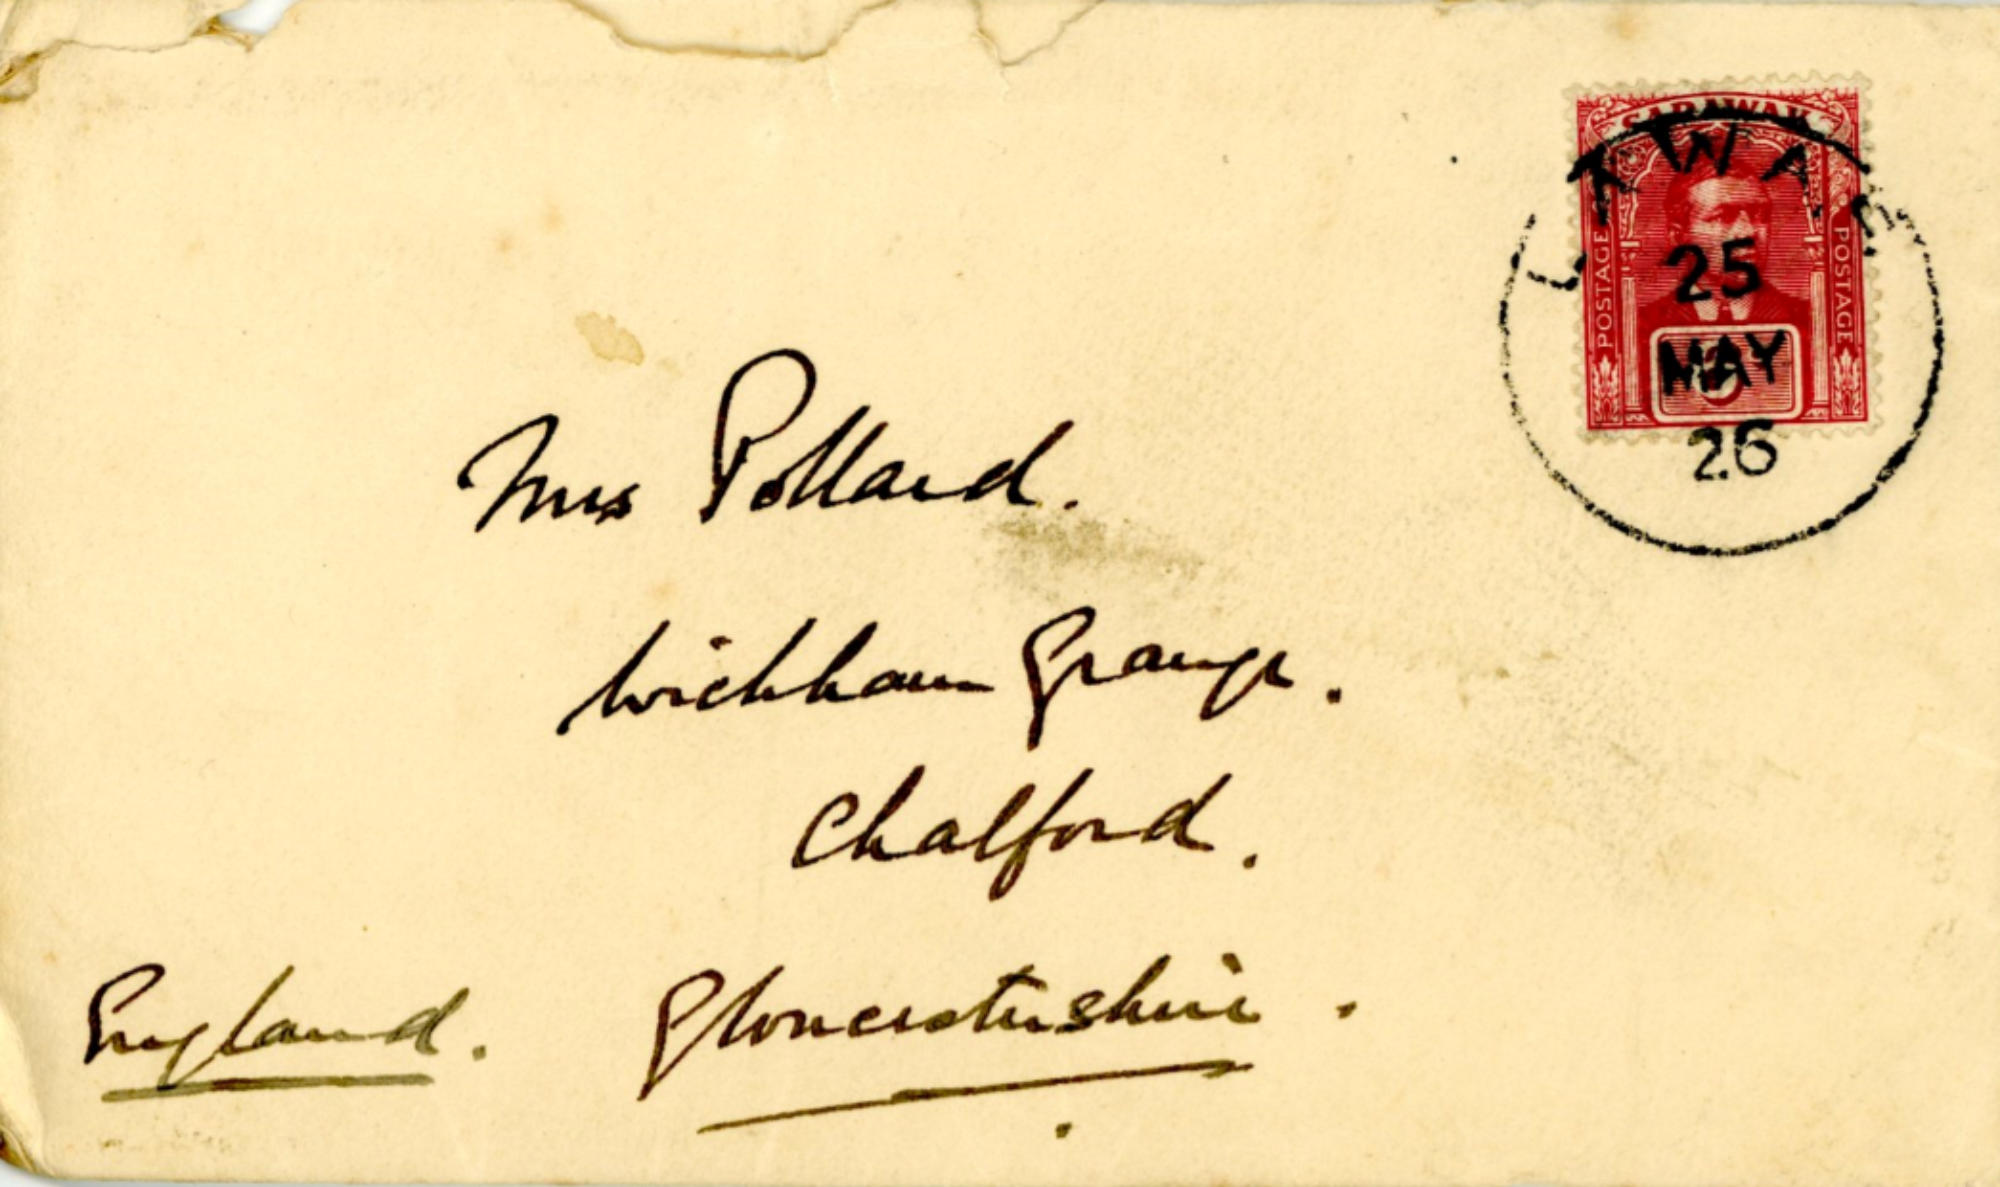 SARAWAK
POSTAGE
POSTAGE
25
MAY
26
Mrs Pollard.
Wickham Grange.
Chalford.
Gloucestershire.
England.